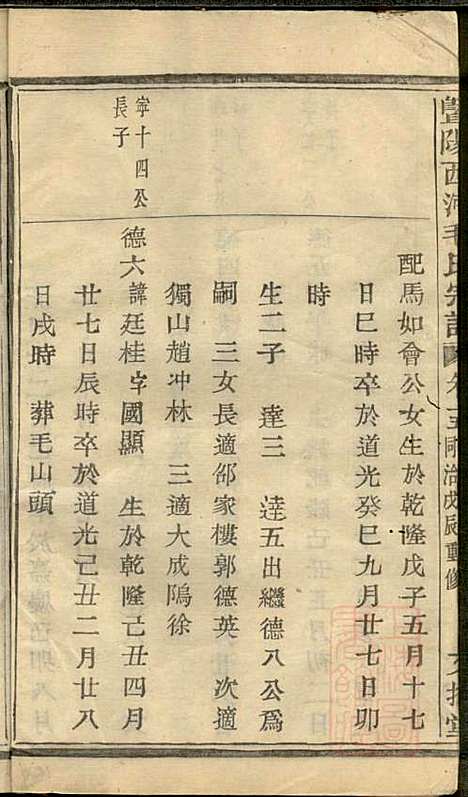 暨陽西河毛氏宗譜 卷五 同治戊辰重修
配馬如會公女生於乾隆戊子五月十七
日巳時卒於道光癸巳九月廿七日卯
時
生二子 達三 達五出繼德八公爲
嗣 三女長適邵家樓郭德英 次適
獨山趙冲林 三適大成隖徐
寜十四公
長子
德六 諱廷桂字國顯 生於乾隆己丑四月
廿七日辰時卒於道光己丑二月廿八
日戌時 葬毛山頭